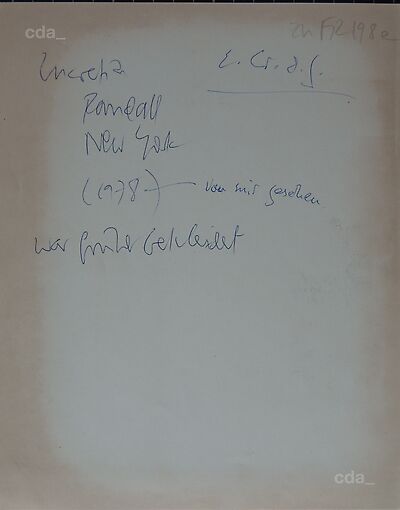 cda_
zu FR 198e
Lucretia
L. Cr. d. J.
Randall
New York
(1978) — von mir gesehen.
war früher bekleidet
cda_